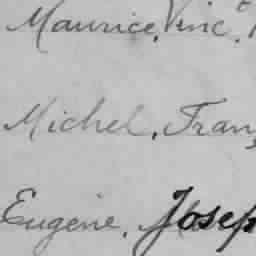 Maurice, Vinc
Michel, Fran
Eugène, Josep